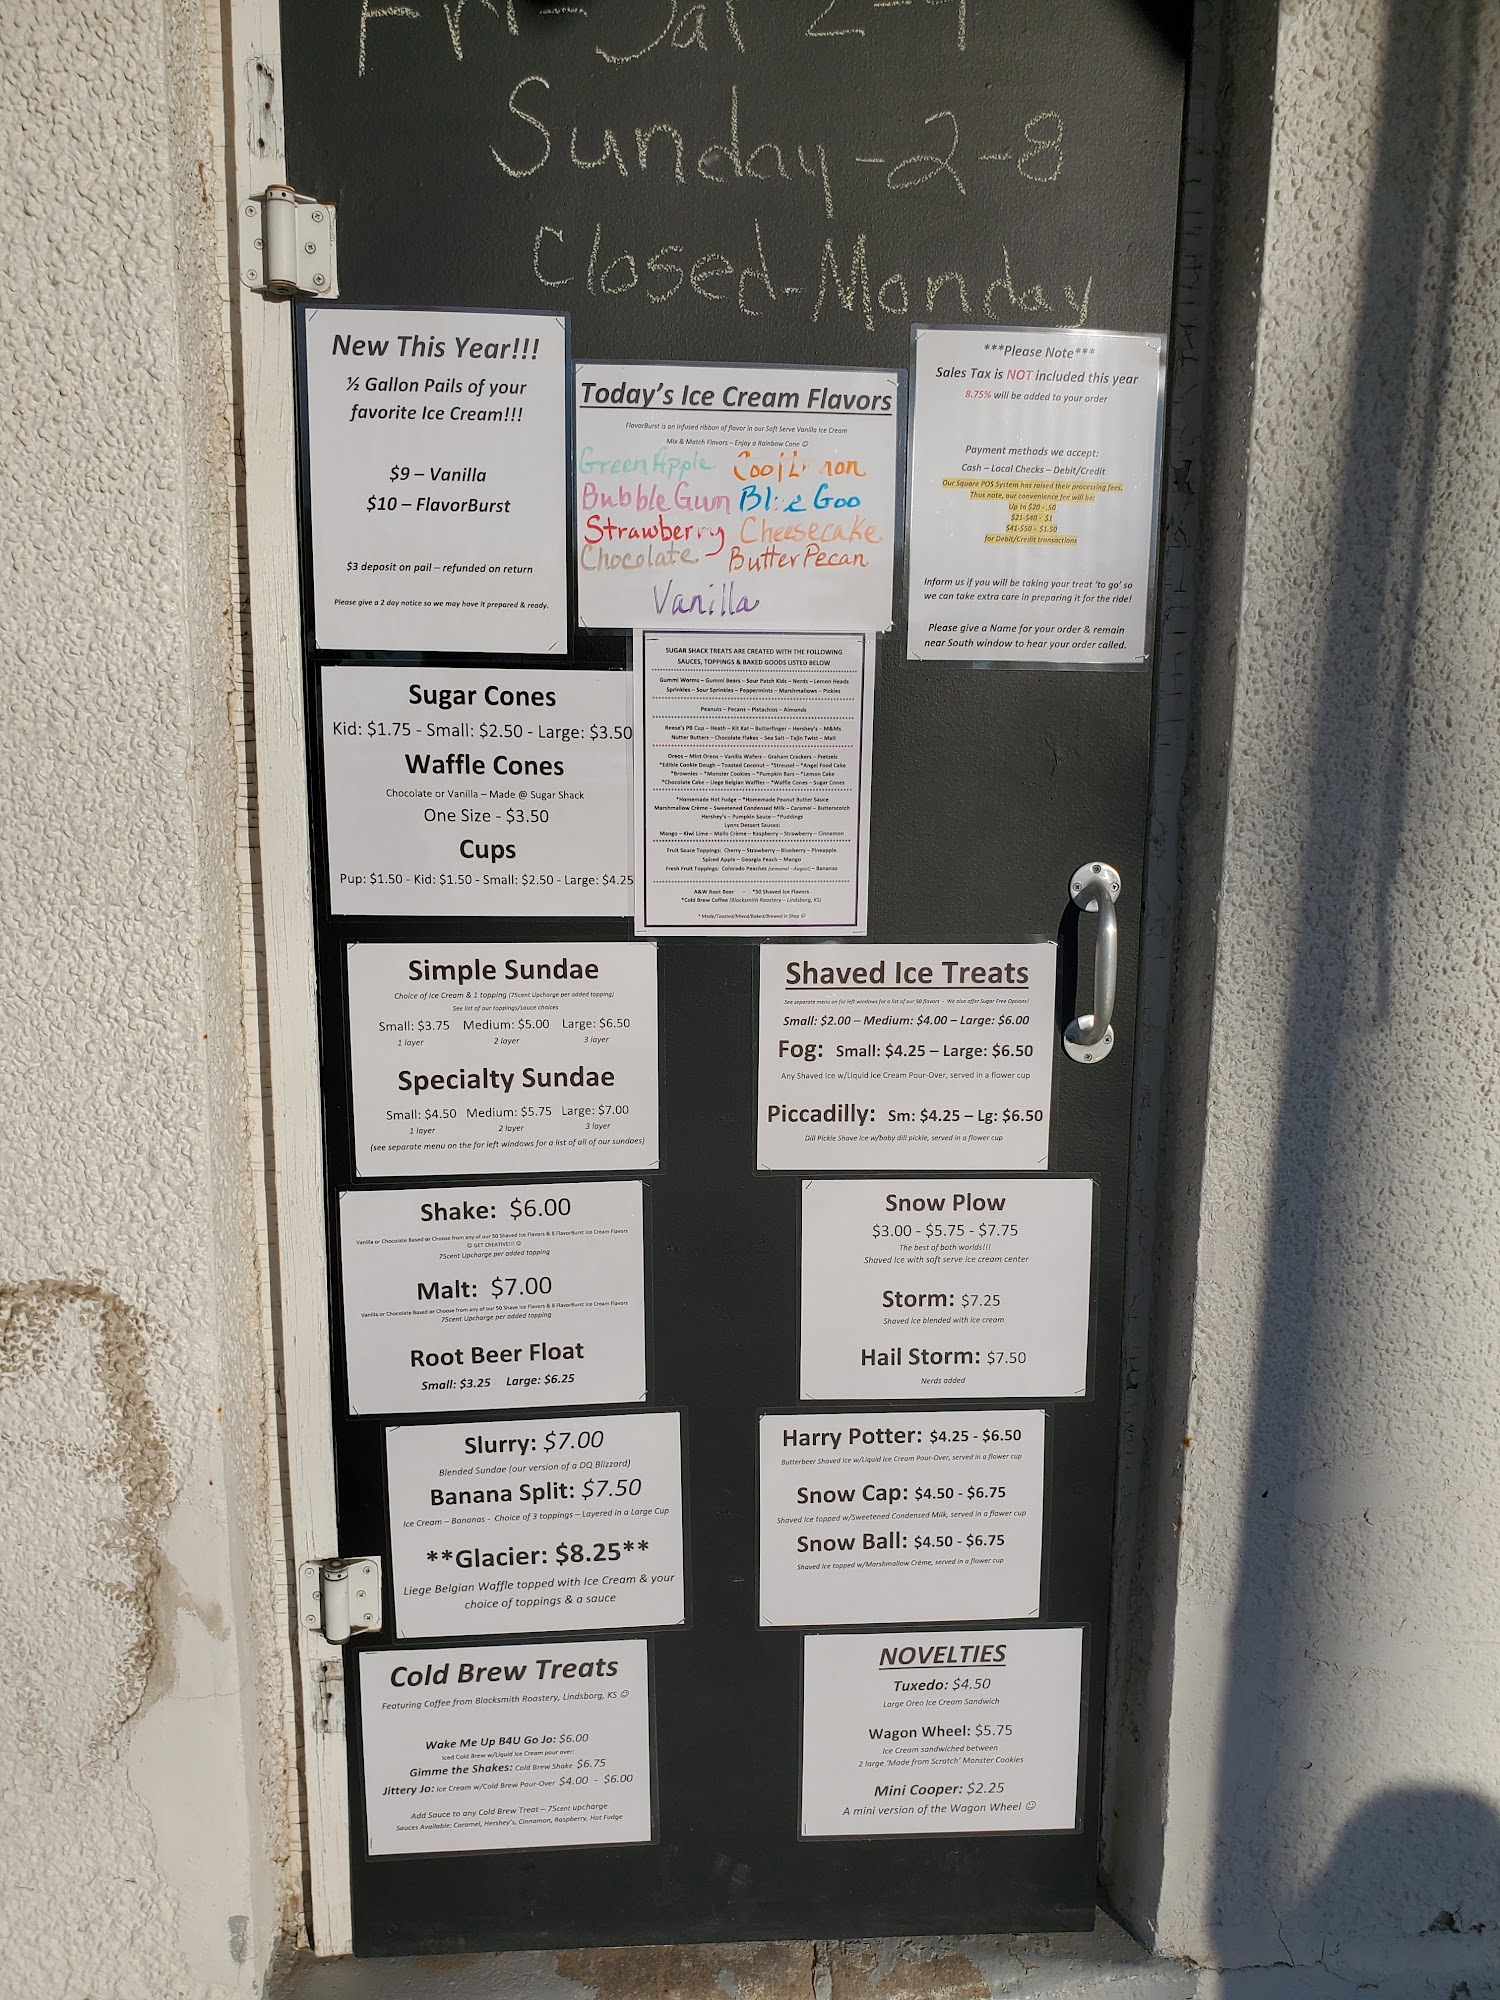 Fri-Sat 2-9
Sunday-2-8
Closed-Monday
New This Year!!!
½ Gallon Pails of your
favorite Ice Cream!!!
$9 – Vanilla
$10 – FlavorBurst
$3 deposit on pail – refunded on return
Please give a 2 day notice so we may have it prepared & ready.
Today's Ice Cream Flavors
FlavorBurst is an infused ribbon of flavor in our Soft Serve Vanilla Ice Cream
Mix & Match Flavors – Enjoy a Rainbow Cone ☺
Green Apple
Bubble Gum Blue Goo
Strawberry Cheesecake
Chocolate Butter Pecan
Vanilla
***Please Note***
Sales Tax is NOT included this year
8.75% will be added to your order
Payment methods we accept:
Cash – Local Checks – Debit/Credit
Our Square POS System has raised their processing fees.
Thus note, our convenience fee will be:
Up to $20 - .50
$21-$40 - $1
$41-$50 - $1.50
for Debit/Credit transactions
Inform us if you will be taking your treat 'to go' so
we can take extra care in preparing it for the ride!
Please give a Name for your order & remain
near South window to hear your order called.
Sugar Cones
Kid: $1.75 - Small: $2.50 - Large: $3.50
Waffle Cones
Chocolate or Vanilla – Made @ Sugar Shack
One Size - $3.50
Cups
Pup: $1.50 - Kid: $1.50 - Small: $2.50 - Large: $4.25
SUGAR SHACK TREATS ARE CREATED WITH THE FOLLOWING
SAUCES, TOPPINGS & BAKED GOODS LISTED BELOW
Gummi Worms – Gummi Bears – Sour Patch Kids – Nerds – Lemon Heads
Sprinkles – Sour Sprinkles – Peppermints – Marshmallows – Pickles
Peanuts – Pecans – Pistachios – Almonds
Reese's PB Cup – Heath – Kit Kat – Butterfinger – Hershey's – M&Ms
Nutter Butters – Chocolate Flakes – Sea Salt – Tajin Twist – Malt
Oreos – Mint Oreos – Vanilla Wafers – Graham Crackers – Pretzels
*Edible Cookie Dough – Toasted Coconut – *Streusel – *Angel Food Cake
*Brownies – *Monster Cookies – *Pumpkin Bars – *Lemon Cake
*Chocolate Cake – Liege Belgian Waffles – *Waffle Cones – Sugar Cones
*Homemade Hot Fudge – *Homemade Peanut Butter Sauce
Marshmallow Crème – Sweetened Condensed Milk – Caramel – Butterscotch
Hershey's – Pumpkin Sauce – *Puddings
Lyons Dessert Sauces:
Mango – Kiwi Lime – Mallo Crème – Raspberry – Strawberry – Cinnamon
Fruit Sauce Toppings: Cherry – Strawberry – Blueberry – Pineapple
Spiced Apple – Georgia Peach – Mango
Fresh Fruit Toppings: Colorado Peaches (seasonal – August) – Bananas
A&W Root Beer – *50 Shaved Ice Flavors
*Cold Brew Coffee (Blacksmith Roastery – Lindsborg, KS)
* Made/Toasted/Mixed/Baked/Brewed in Shop ☺
Simple Sundae
Choice of Ice Cream & 1 topping (75cent Upcharge per added topping)
See list of our toppings/sauce choices
Small: $3.75 Medium: $5.00 Large: $6.50
1 layer 2 layer 3 layer
Specialty Sundae
Small: $4.50 Medium: $5.75 Large: $7.00
1 layer 2 layer 3 layer
(see separate menu on the far left windows for a list of all of our sundaes)
Shaved Ice Treats
See separate menu on far left windows for a list of our 50 flavors - We also offer Sugar Free Options!
Small: $2.00 – Medium: $4.00 – Large: $6.00
Fog: Small: $4.25 – Large: $6.50
Any Shaved Ice w/Liquid Ice Cream Pour-Over, served in a flower cup
Piccadilly: Sm: $4.25 – Lg: $6.50
Dill Pickle Shave Ice w/baby dill pickle, served in a flower cup
Shake: $6.00
Vanilla or Chocolate Based or Choose from any of our 50 Shaved Ice Flavors & 8 FlavorBurst Ice Cream Flavors
☺ GET CREATIVE!!! ☺
75cent Upcharge per added topping
Malt: $7.00
Vanilla or Chocolate Based or Choose from any of our 50 Shave Ice Flavors & 8 FlavorBurst Ice Cream Flavors
75cent Upcharge per added topping
Root Beer Float
Small: $3.25 Large: $6.25
Snow Plow
$3.00 - $5.75 - $7.75
The best of both worlds!!!
Shaved Ice with soft serve ice cream center
Storm: $7.25
Shaved Ice blended with ice cream
Hail Storm: $7.50
Nerds added
Slurry: $7.00
Blended Sundae (our version of a DQ Blizzard)
Banana Split: $7.50
Ice Cream – Bananas - Choice of 3 toppings – Layered in a Large Cup
**Glacier: $8.25**
Liege Belgian Waffle topped with Ice Cream & your
choice of toppings & a sauce
Harry Potter: $4.25 - $6.50
Butterbeer Shaved Ice w/Liquid Ice Cream Pour-Over, served in a flower cup
Snow Cap: $4.50 - $6.75
Shaved Ice topped w/Sweetened Condensed Milk, served in a flower cup
Snow Ball: $4.50 - $6.75
Shaved Ice topped w/Marshmallow Crème, served in a flower cup
Cold Brew Treats
Featuring Coffee from Blacksmith Roastery, Lindsborg, KS ☺
Wake Me Up B4U Go Jo: $6.00
Iced Cold Brew w/Liquid Ice Cream pour over:
Gimme the Shakes: Cold Brew Shake $6.75
Jittery Jo: Ice Cream w/Cold Brew Pour-Over $4.00 - $6.00
Add Sauce to any Cold Brew Treat – 75cent upcharge
Sauces Available: Caramel, Hershey's, Cinnamon, Raspberry, Hot Fudge
NOVELTIES
Tuxedo: $4.50
Large Oreo Ice Cream Sandwich
Wagon Wheel: $5.75
Ice Cream sandwiched between
2 large 'Made from Scratch' Monster Cookies
Mini Cooper: $2.25
A mini version of the Wagon Wheel ☺